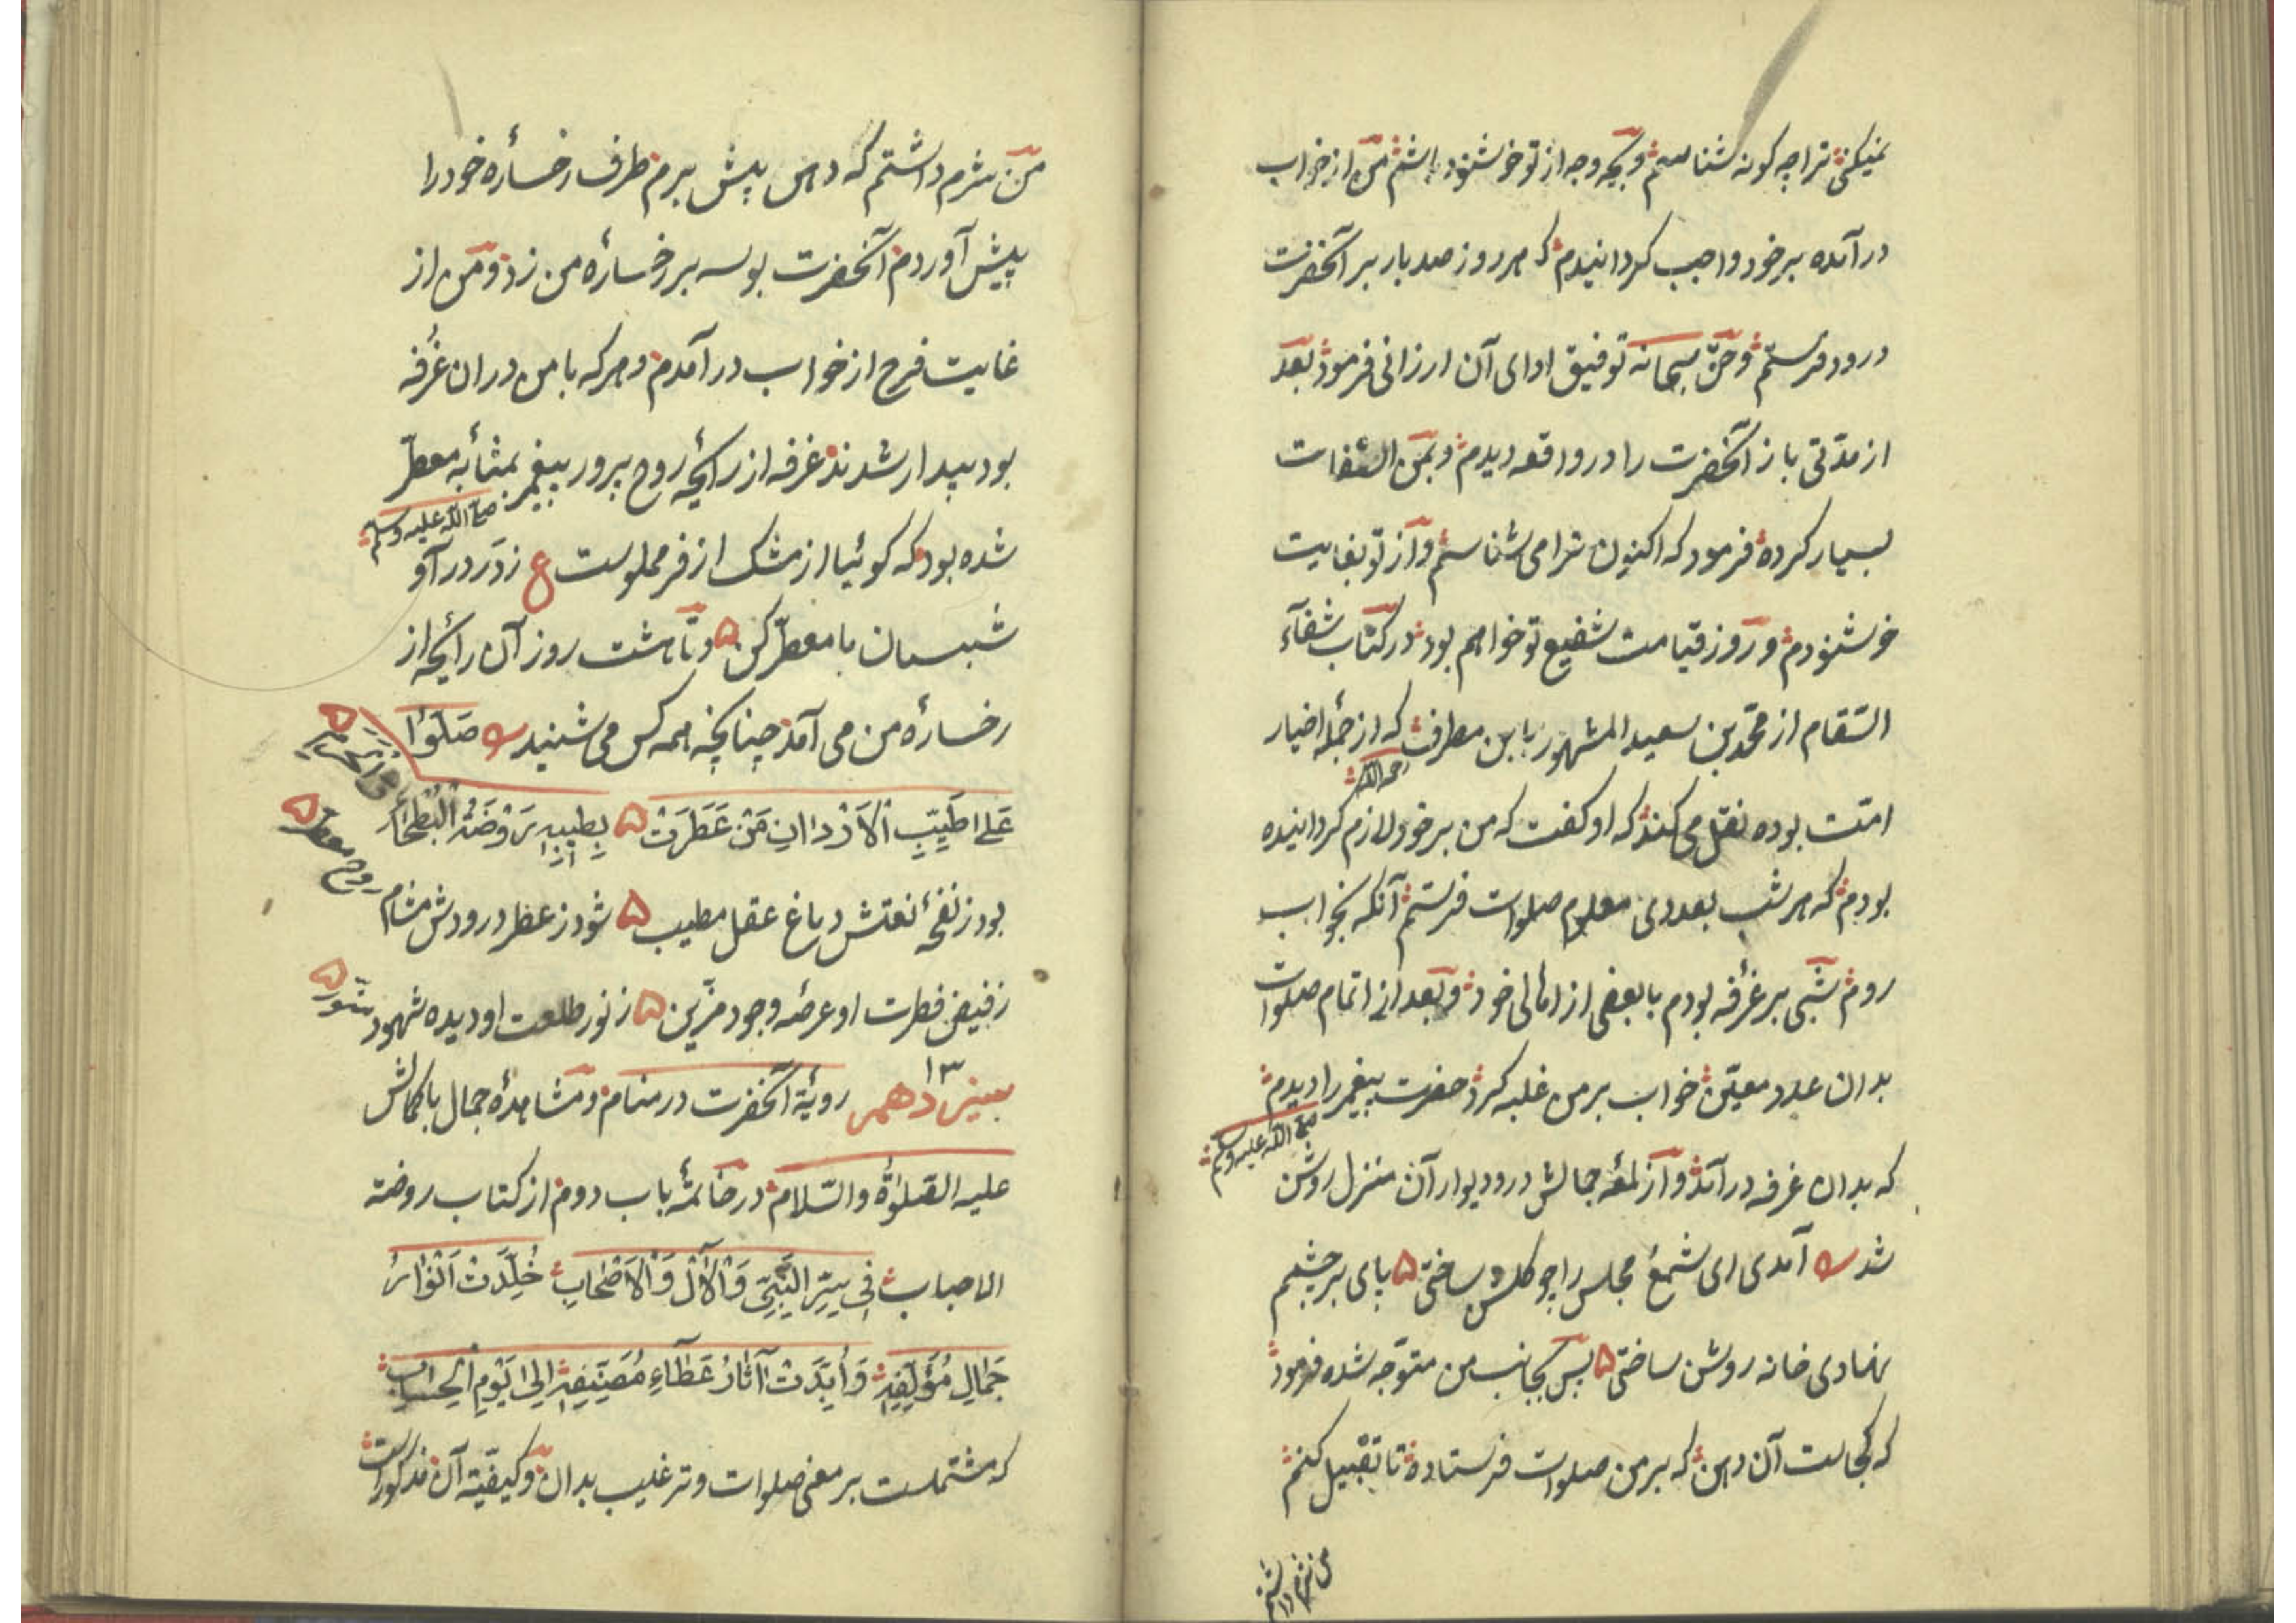 نمیکنی ترا چه کونه شناسم و بچه وجه از تو خوشنود باشم من از خواب
در آمده بر خود واجب کردانیدم که هر روز صد بار بر آنحضرت
درود فرستم و حق سبحانه توفیق ادای آن ارزانی فرمود بعد
از مدّتی باز آنحضرت را در واقعه دیدم و بمن التفات
بسیار کرده فرمود که اکنون ترا می شناسم و از تو بغایت
خوشنودم و روز قیامت شفیع تو خواهم بود در کتاب شفآء
السّقام از محمّد بن سعید المشهور بابن مطرف که از جمله اخیار
رحمه الله
امّت بوده نقل می کند که او کفت که من بر خود لازم کردانیده
بودم که هر شب بعددی معلوم صلوات فرستم آنکه بخواب
روم شبی بر غرفه بودم با بعضی از اهالی خود و بعد از اتمام صلوات
بدان عدد معیّن خواب بر من غلبه کرد حضرت پیغمبر را دیدم
صلی الله علیه وسلم
که بدان غرفه در آمد و از لمعه جمالش در و دیوار آن منزل روشن
شد آمدی ای شمع مجلس را چو کلشن ساختی ۵ پای بر چشمم
نهادی خانه روشن ساختی ۵ پس بجانب من متوجّه شده فرمود
که کجاست آن دهن که بر من صلوات فرستاده تا تقبیل کنم
من شرم داشتم
من شرم داشتم که دهن پیش برم طرف رخسارهٔ خود را
پیش آوردم آنحضرت بوسه بر رخسارهٔ من زد و من از
غایت فرح از خواب در آمدم و هر که با من در ان غرفه
بود بیدار شدند غرفه از رائحهٔ روح پرور پیغمبر بمثابه معطّر
صلی الله علیه وسلم
شده بود که کوئیا از مشک ازفر مملوست ع ز در در آ و
شبستان ما معطّر کن ۵ و تا هشت روز آن رائحه از
رخسارهٔ من می آمد چنانچه همه کس می شنید صَلُّوا
عَلی اَطیَبِ الْاَرْدانِ مَنْ عَطَّرَتْ ۵ بِطیبِهِ رَوْضَةُ الْبَطْحَاءِ
والحرم ۵
بود ز نفحهٔ نعتش دماغ عقل مطیب ۵ شود ز عطر درودش مشام
روح معطر ۵
ز فیض فطرت او عرصه وجود مزّین ۵ ز نور طلعت او دیده شهود
منوّر ۵
سیزدهم ۱۳ رویهٔ آنحضرت در منام و مشاهدهٔ جمال باکمالش
علیه الصّلوةُ والسّلام در خاتمهٔ باب دوم از کتاب روضة
الاحباب فِی سِیَرِ النَّبِیِّ وَالْآلِ وَالْاَصْحَابِ خُلِّدَتْ اَنْوٰارُ
جَمَالِ مُؤَلِّفِهِ وَاُبِّدَتْ آثَارُ عَطَآءِ مُصَنِّفِهِ اِلی یَوْمِ الْحِسَابِ
که مشتملست بر معنی صلوات و ترغیب بدان و کیفیّة آن مذکورست